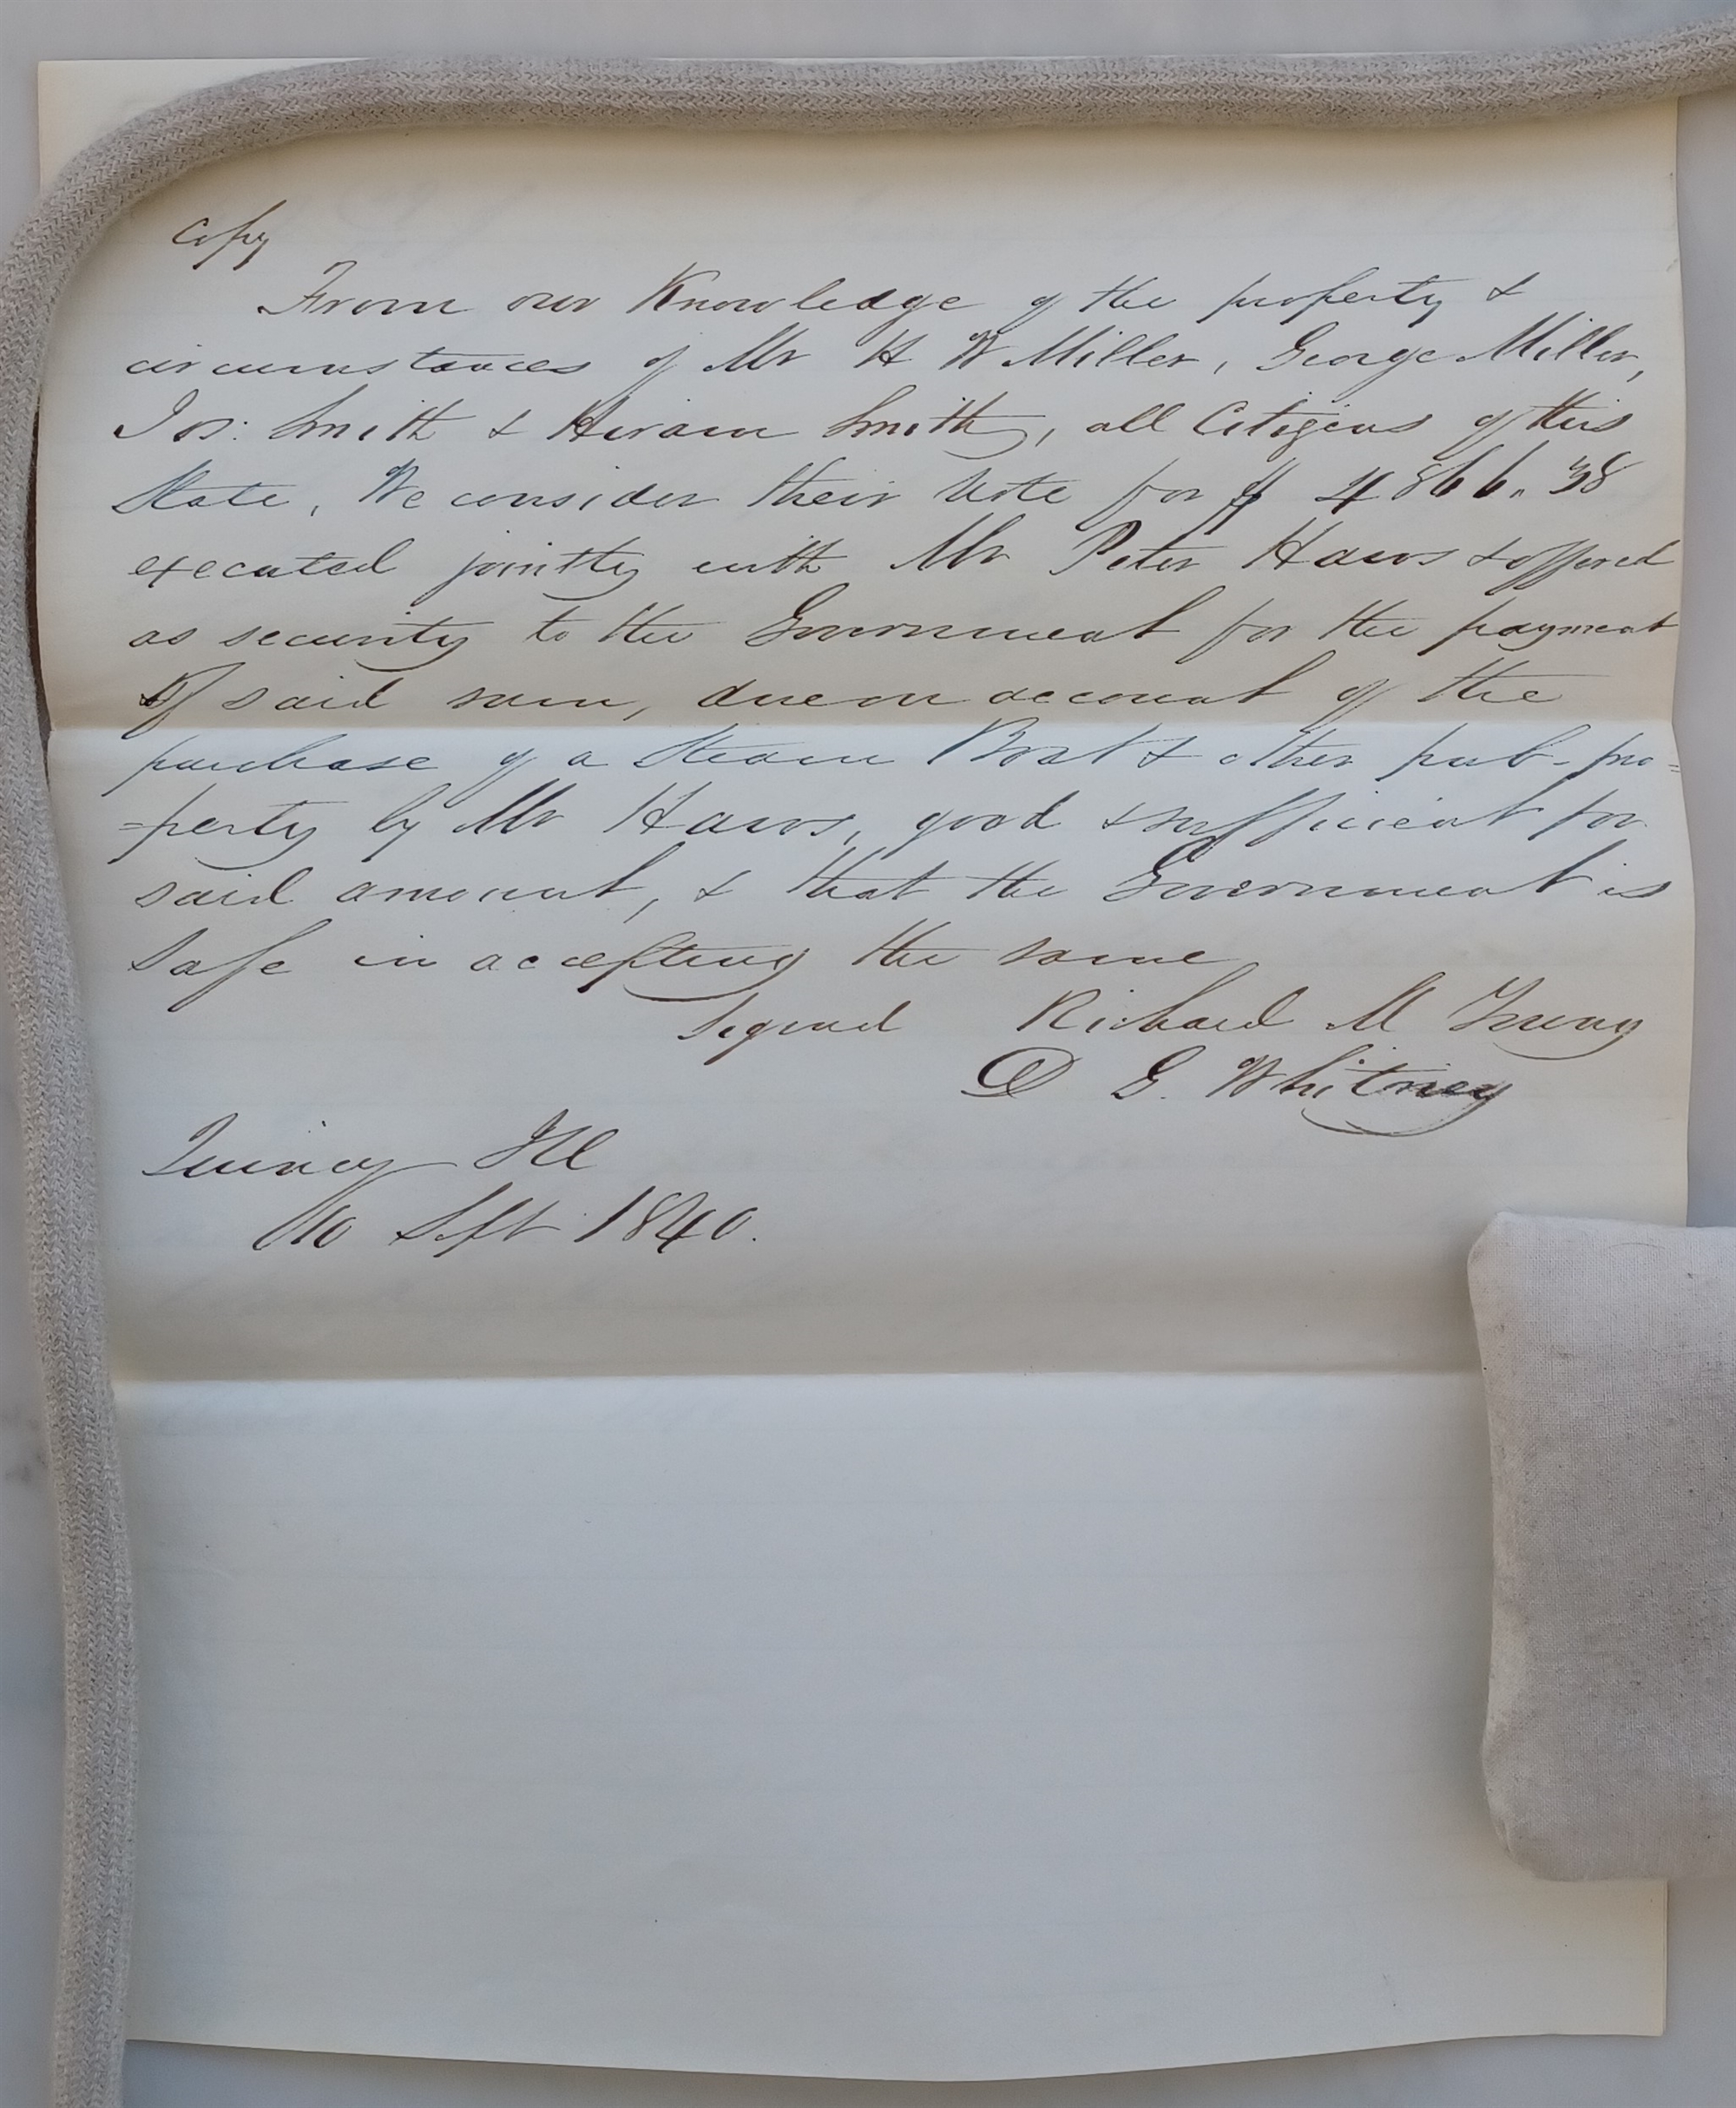 Copy
From our Knowledge of the property &
circumstances of Mr H W Miller, George Miller,
Jos: Smith & Hiram Smith, all Citizens of this
State, We consider their Note for $ 4866.38
executed jointly with Mr Peter Haws & offered
as security to the Government for the payment
of said sum, due on account of the
purchase of a Steam Boat & other pub- pro=
=perty by Mr Haws, good & sufficient for
said amount, & that the Government is
safe in accepting the same
Signed Richard M Young
D G. Whitney
Quincy Ill
10 Sept 1840.